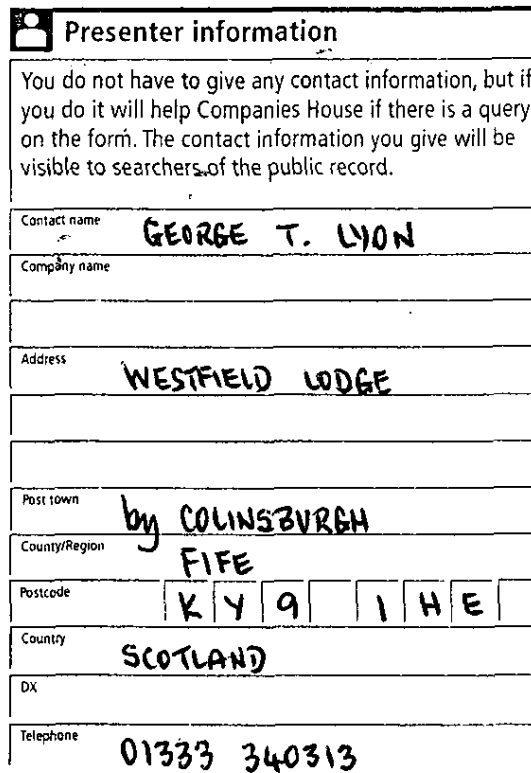 Presenter information
You do not have to give any contact information, but if
you do it will help Companies House if there is a query
on the form. The contact information you give will be
visible to searchers of the public record.
Contact name GEORGE T. LYON
Company name
Address WESTFIELD LODGE
Post town by COLINSBURGH
County/Region FIFE
Postcode KY9 1HE
Country SCOTLAND
DX
Telephone 01333 340313